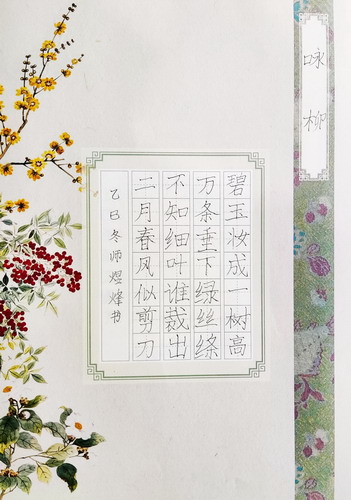 咏柳
碧玉妆成一树高
万条垂下绿丝绦
不知细叶谁裁出
二月春风似剪刀
乙巳冬师煜烽书